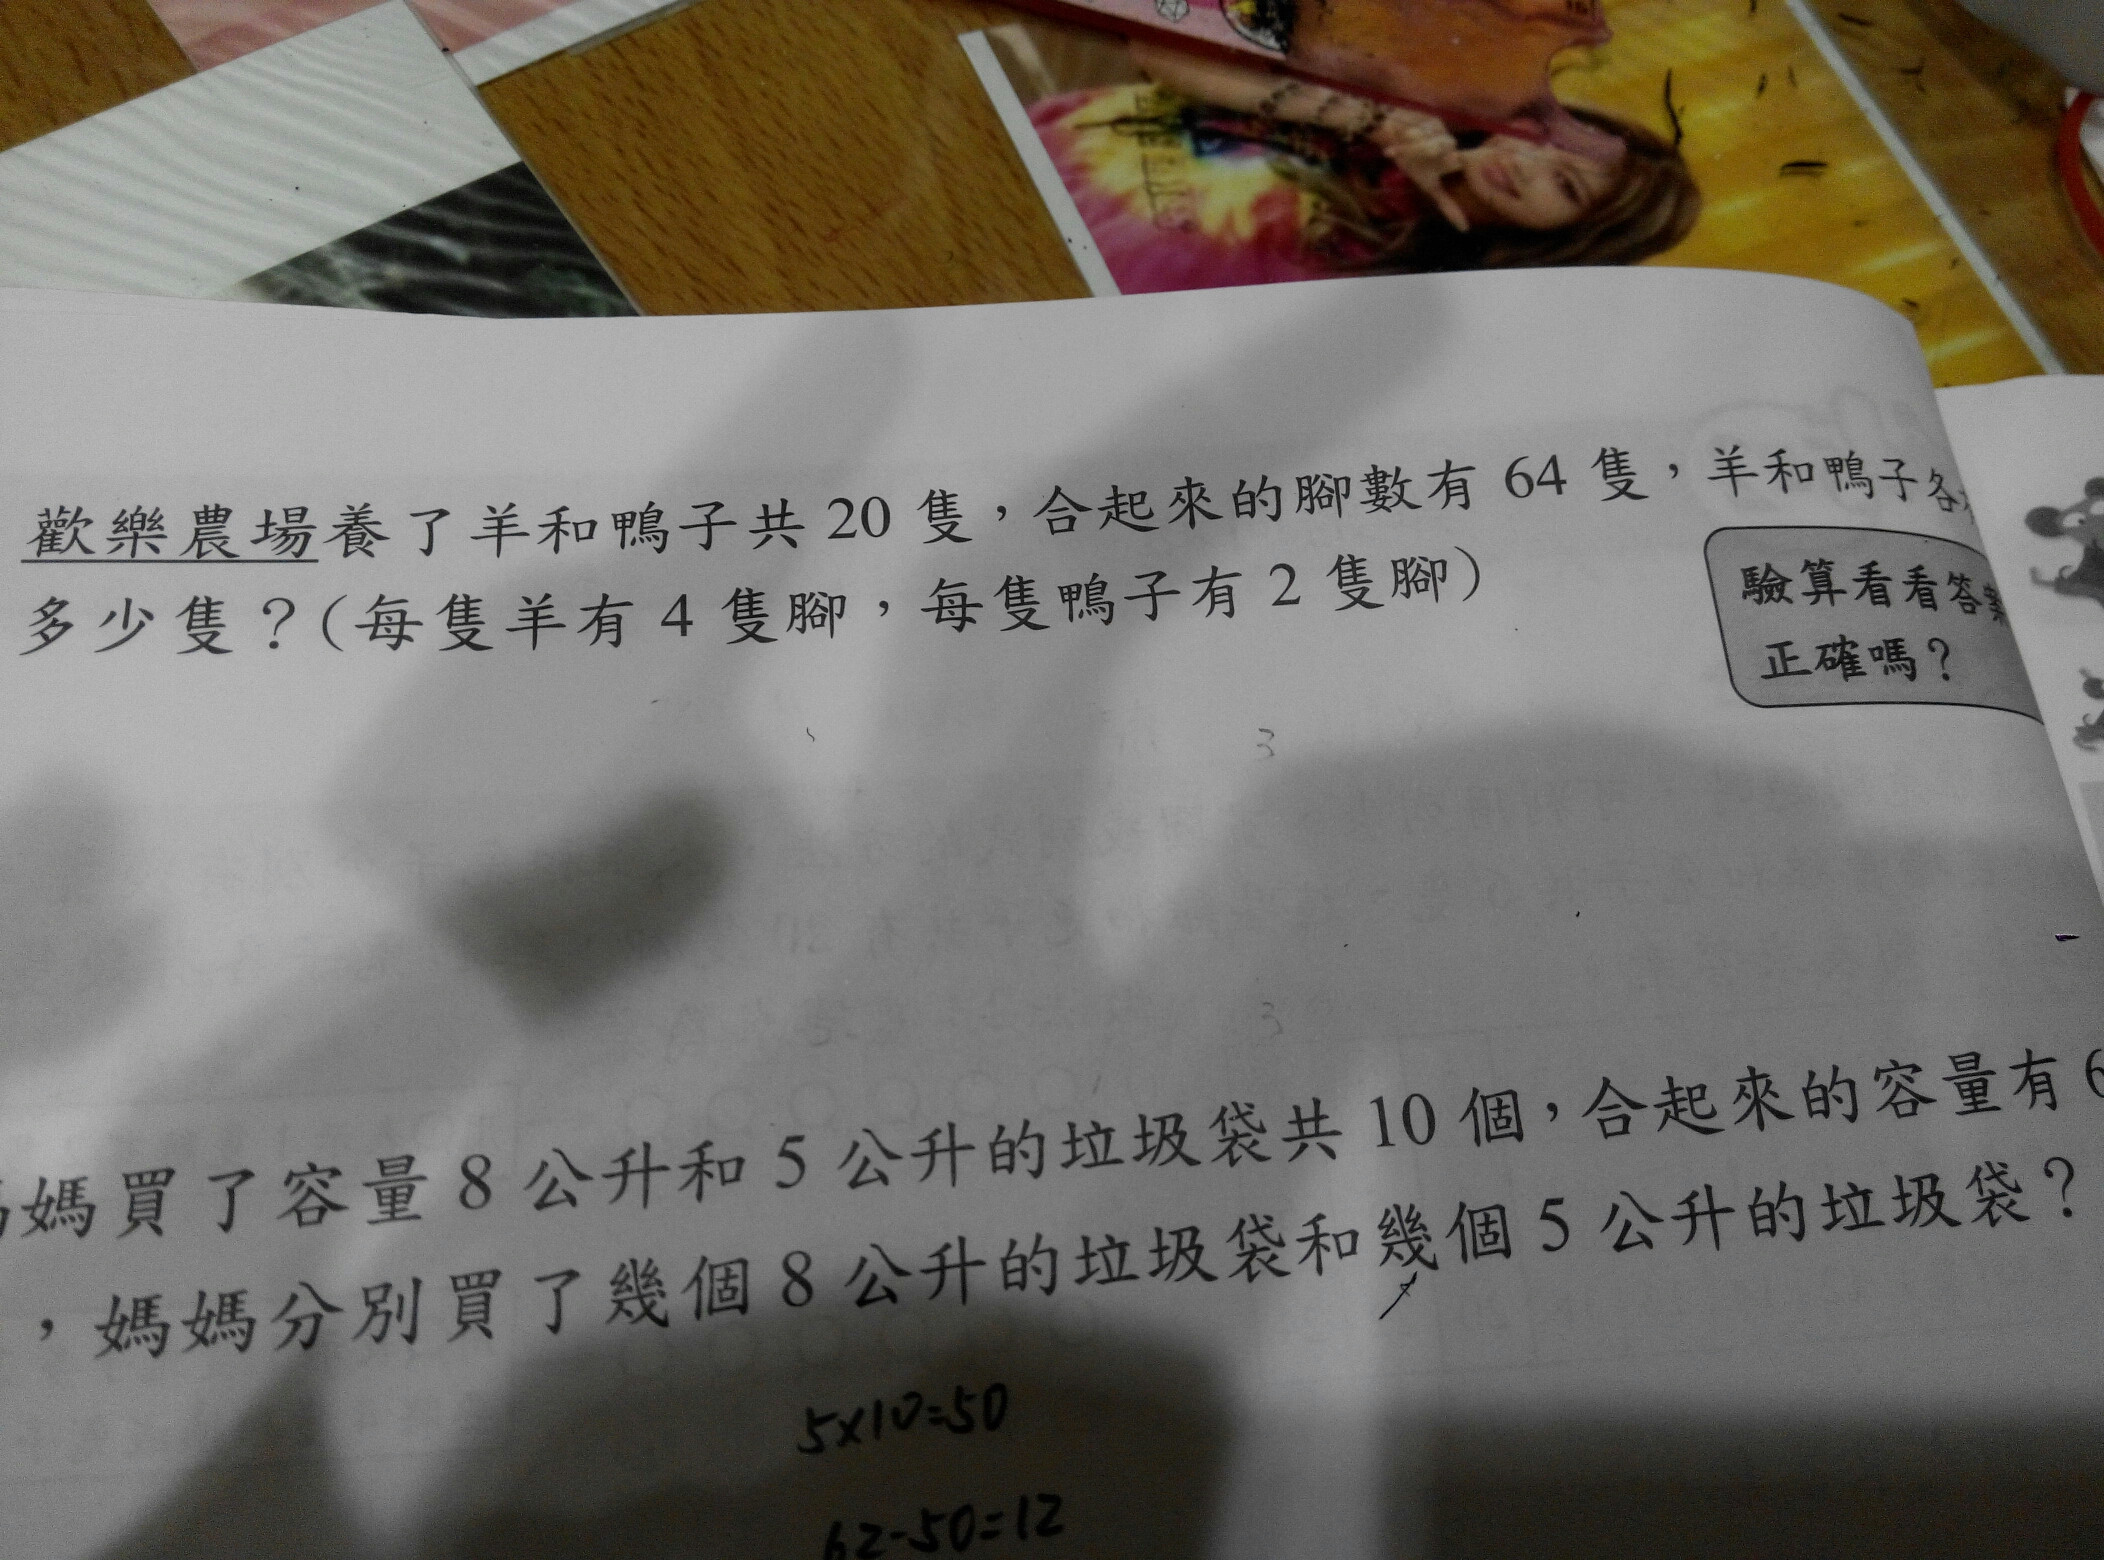 歡樂農場養了羊和鴨子共 20 隻，合起來的腳數有 64 隻，羊和鴨子各
多少隻？（每隻羊有 4 隻腳，每隻鴨子有 2 隻腳）
驗算看看答案
正確嗎？
3
3
媽買了容量 8 公升和 5 公升的垃圾袋共 10 個，合起來的容量有 6
，媽媽分別買了幾個 8 公升的垃圾袋和幾個 5 公升的垃圾袋？
5×10=50
62-50=12